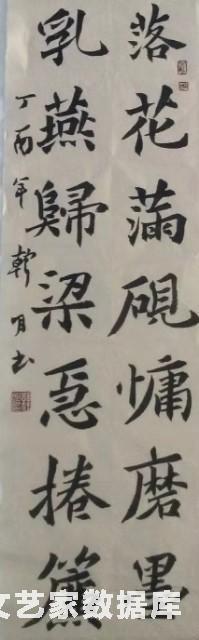 落花滿硯慵磨墨
乳燕歸梁急捲簾
丁酉年軒明书
文艺家数据库